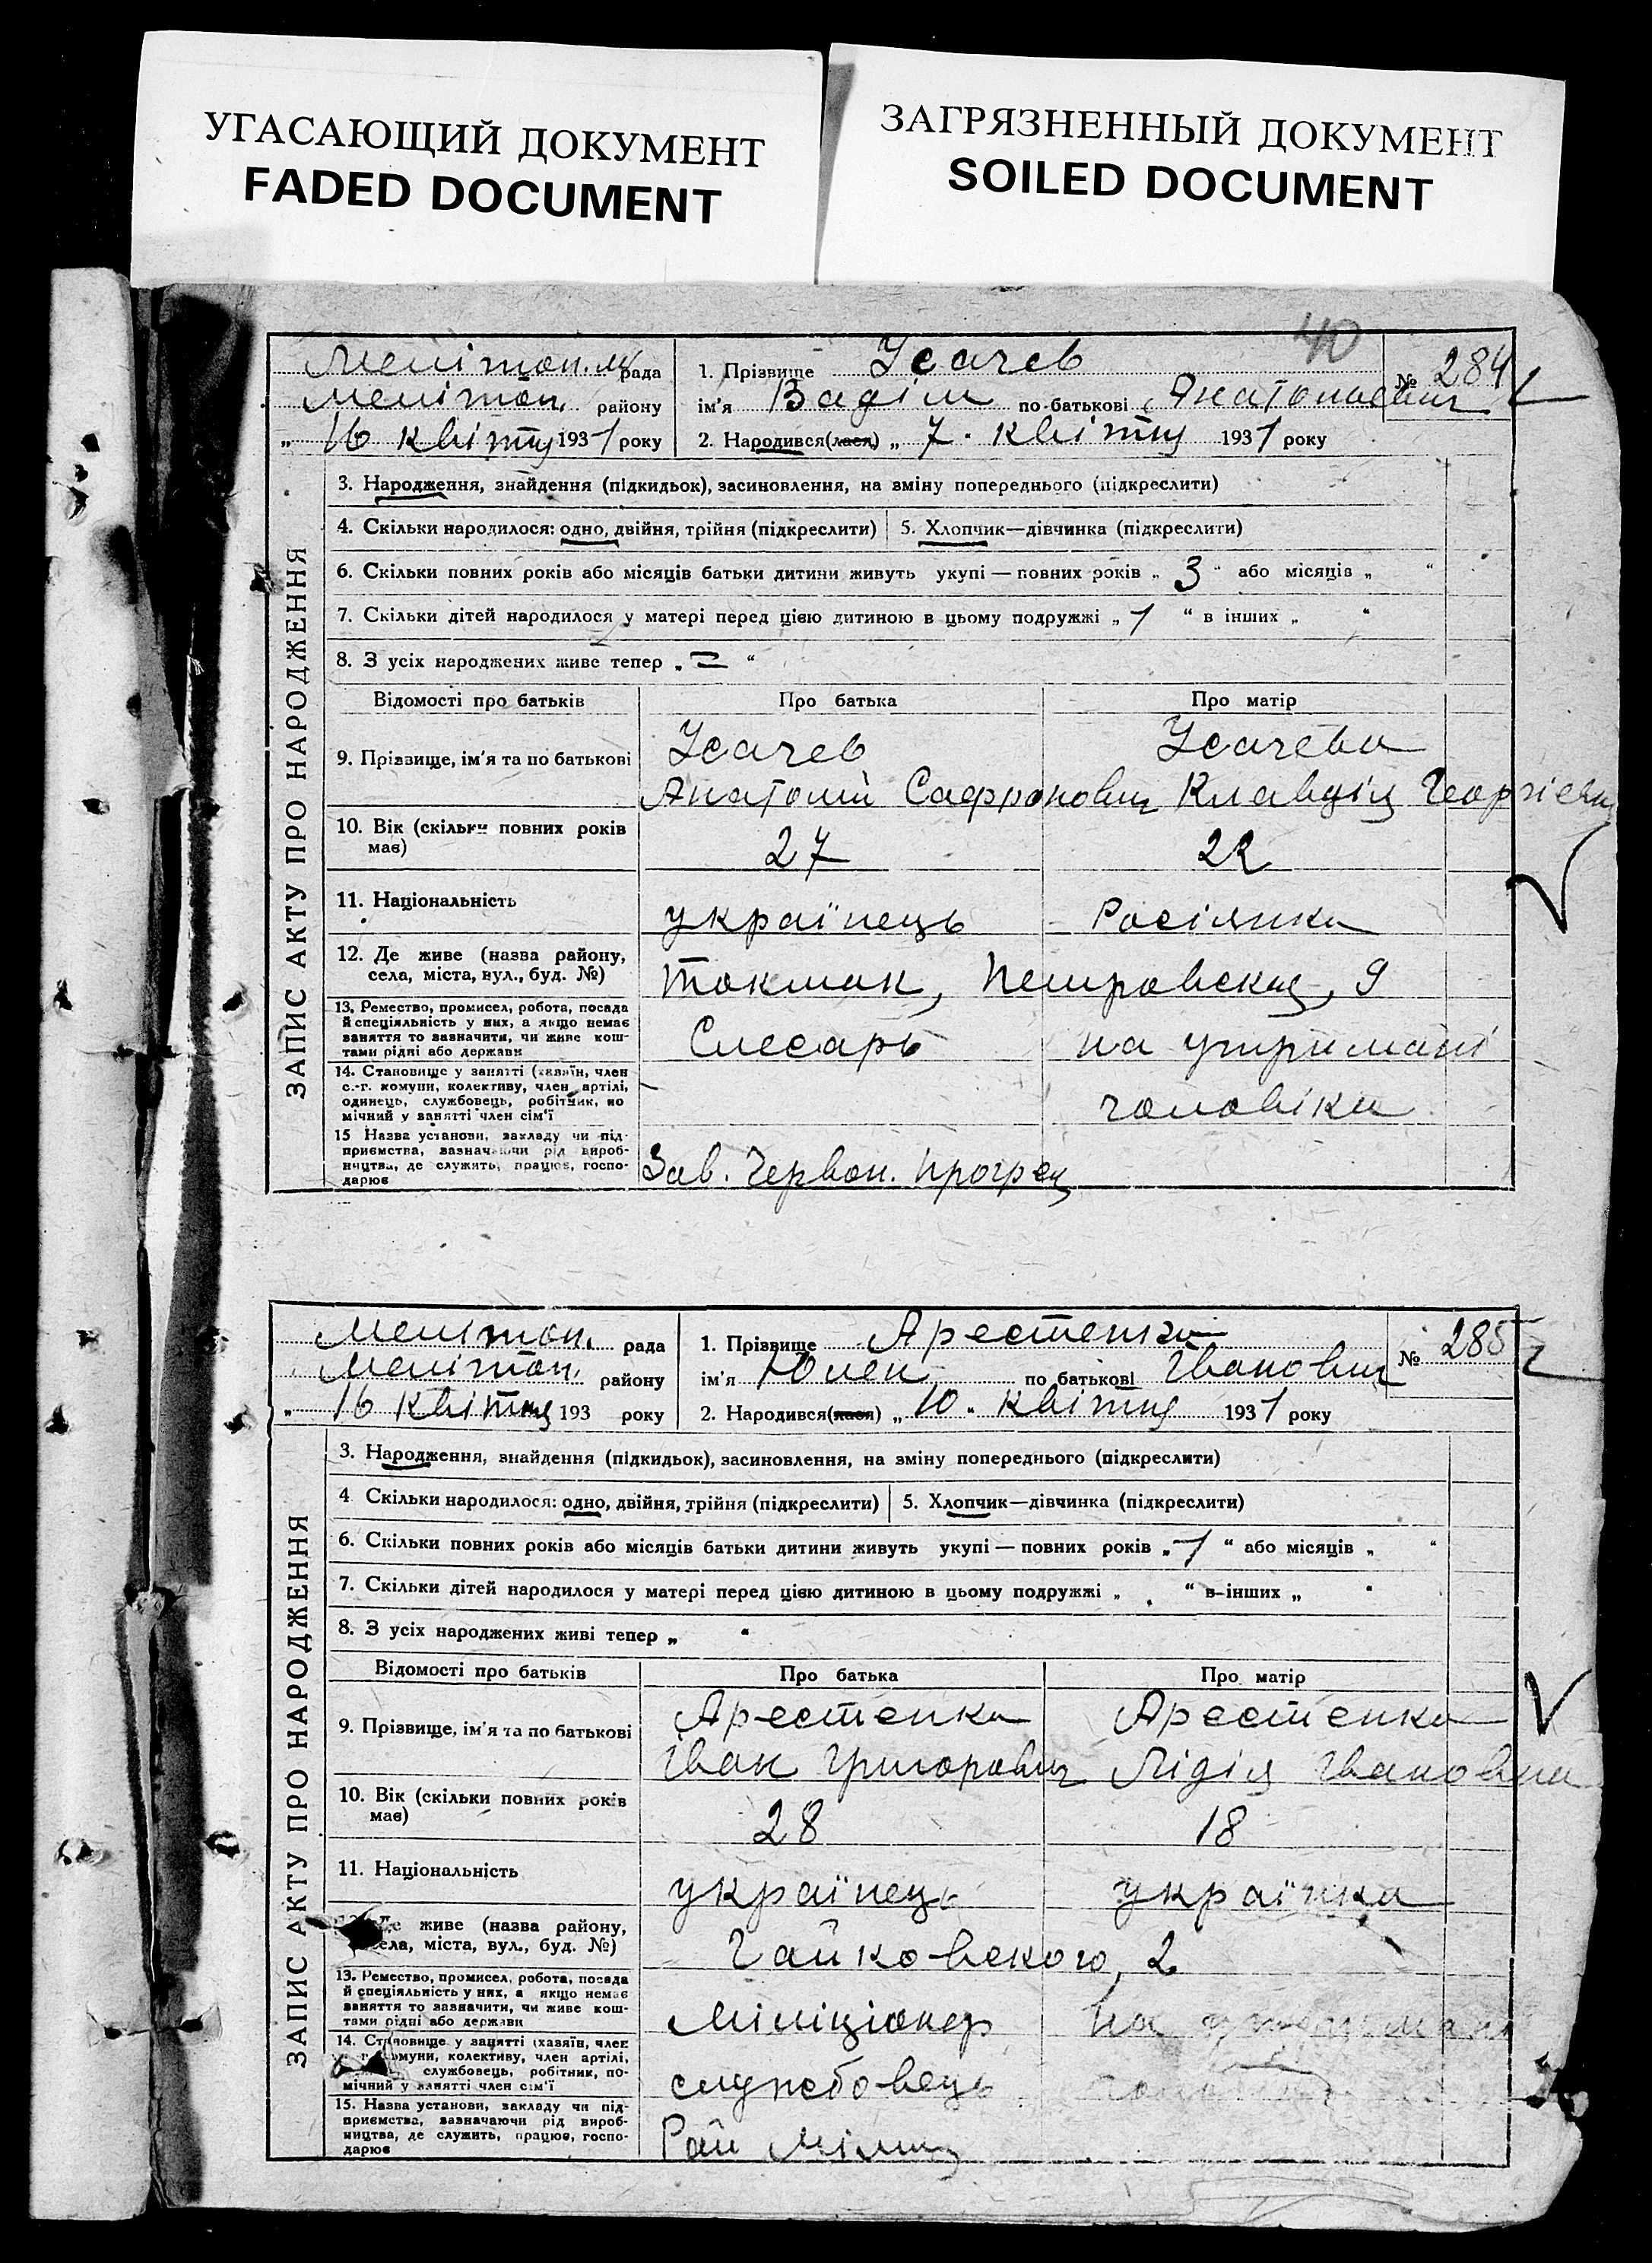 УГАСАЮЩИЙ ДОКУМЕНТ
FADED DOCUMENT
ЗАГРЯЗНЕННЫЙ ДОКУМЕНТ
SOILED DOCUMENT
40
ЗАПИС АКТУ ПРО НАРОДЖЕННЯ
Мелітоп. м. рада
Мелітоп. району
„ 16 квітня 1931 року
1. Прізвище Усачев
№ 284
ім'я Вадім по батькові Анатольевич
2. Народився(лася) „ 7 " квітня 1931 року
3. Народження, знайдення (підкидьок), засиновлення, на зміну попереднього (підкреслити)
4. Скільки народилося: одно, двійня, трійня (підкреслити) 5. Хлопчик—дівчинка (підкреслити)
6. Скільки повних років або місяців батьки дитини живуть укупі — повних років „ 3 " або місяців „ "
7. Скільки дітей народилося у матері перед цією дитиною в цьому подружжі „ 1 " в інших „ "
8. З усіх народжених живе тепер „ 2 "
Відомості про батьків Про батька Про матір
9. Прізвище, ім'я та по батькові Усачев Усачева
Анатолій Сафронович Клавдія Георгіевна
10. Вік (скільки повних років має) 27 22
11. Національність українець Росіянка
12. Де живе (назва району, села, міста, вул., буд. №) Токмак, Петровская, 9
13. Ремество, промисел, робота, посада й спеціяльність у них, а якщо немає заняття то зазначити, чи живе коштами рідні або держави Слесарь на утримані
14. Становище у занятті (хазяїн, член с.-г. комуни, колективу, член артілі, одинець, службовець, робітник, помічний у занятті член сім'ї чоловіка
15 Назва установи, закладу чи підприємства, вазначаючи рід виробництва, де служить, працює, господарює Зав. Червон. Прогрес
ЗАПИС АКТУ ПРО НАРОДЖЕННЯ
Мелітоп. рада
Мелітоп. району
„ 16 квітня 193 року
1. Прізвище Арестенко
№ 285
ім'я Юлен по батькові Іванович
2. Народився(лася) „ 10 " квітня 1931 року
3. Народження, знайдення (підкидьок), засиновлення, на зміну попереднього (підкреслити)
4 Скільки народилося: одно, двійня, трійня (підкреслити) 5. Хлопчик—дівчинка (підкреслити)
6. Скільки повних років або місяців батьки дитини живуть укупі — повних років „ 1 " або місяців „ "
7. Скільки дітей народилося у матері перед цією дитиною в цьому подружжі „ " в інших „ "
8. З усіх народжених живі тепер „ "
Відомості про батьків Про батька Про матір
9. Прізвище, ім'я та по батькові Арестенко Арестенко
Іван Григорович Лідія Івановна
10. Вік (скільки повних років має) 28 18
11. Національність українець українка
Де живе (назва району, села, міста, вул., буд. №) Чайковского, 2
13. Ремество, промисел, робота, посада й спеціяльність у них, а якщо немає заняття то зазначити, чи живе коштами рідні або держави Міліціонер на утримані
14. Становище у занятті (хазяїн, член комуни, колективу, член артілі, службовець, робітник, помічний у занятті член сім'ї службовець
15. Назва установи, закладу чи підприємства, вазначаючи рід виробництва, де служить, працює, господарює Рай